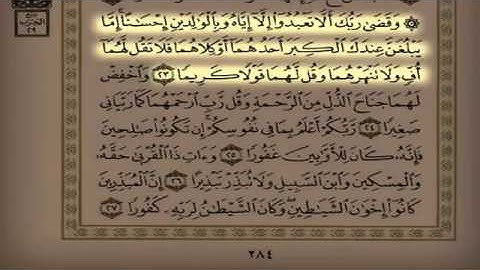 ۞ وَقَضَىٰ رَبُّكَ أَلَّا تَعۡبُدُوٓاْ إِلَّآ إِيَّاهُ وَبِٱلۡوَٰلِدَيۡنِ إِحۡسَٰنًاۚ إِمَّا
يَبۡلُغَنَّ عِندَكَ ٱلۡكِبَرَ أَحَدُهُمَآ أَوۡ كِلَاهُمَا فَلَا تَقُل لَّهُمَآ
أُفّٖ وَلَا تَنۡهَرۡهُمَا وَقُل لَّهُمَا قَوۡلٗا كَرِيمٗا ٢٣ وَٱخۡفِضۡ
لَهُمَا جَنَاحَ ٱلذُّلِّ مِنَ ٱلرَّحۡمَةِ وَقُل رَّبِّ ٱرۡحَمۡهُمَا كَمَا رَبَّيَانِي
صَغِيرٗا ٢٤ رَّبُّكُمۡ أَعۡلَمُ بِمَا فِي نُفُوسِكُمۡۚ إِن تَكُونُواْ صَٰلِحِينَ
فَإِنَّهُۥ كَانَ لِلۡأَوَّٰبِينَ غَفُورٗا ٢٥ وَءَاتِ ذَا ٱلۡقُرۡبَىٰ حَقَّهُۥ
وَٱلۡمِسۡكِينَ وَٱبۡنَ ٱلسَّبِيلِ وَلَا تُبَذِّرۡ تَبۡذِيرًا ٢٦ إِنَّ ٱلۡمُبَذِّرِينَ
كَانُوٓاْ إِخۡوَٰنَ ٱلشَّيَٰطِينِۖ وَكَانَ ٱلشَّيۡطَٰنُ لِرَبِّهِۦ كَفُورٗا ٢٧
٢٨٤